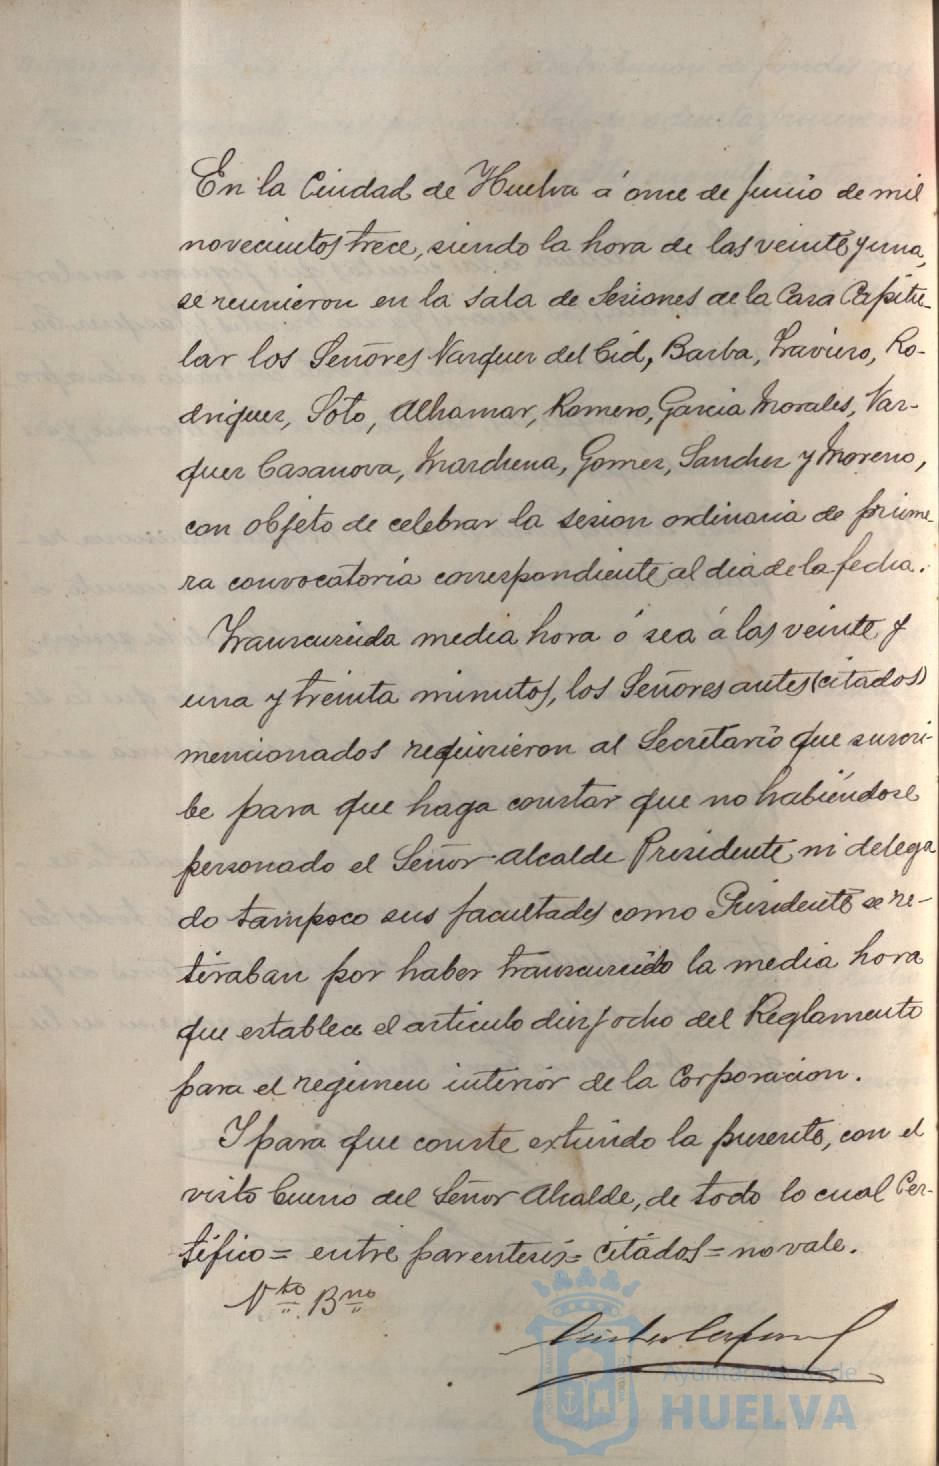 En la Ciudad de Huelva á once de Junio de mil
novecientos trece, siendo la hora de las veinte y una,
se reunieron en la sala de Sesiones de la Casa Capitu-
lar los Señores Vazquez del Cid, Barba, Traviero, Ro-
driguez, Soto, Alhamar, Romero, Garcia Morales, Vaz-
quez Casanova, Marchena, Gomez, Sanchez y Moreno,
con objeto de celebrar la sesion ordinaria de prime-
ra convocatoria correspondiente al dia de la fecha.
Transcurrida media hora ó sea á las veinte y
una y treinta minutos, los Señores antes (citados)
mencionados requirieron al Secretario que suscri-
be para que haga constar que no habiéndose
personado el Señor Alcalde Presidente, ni delega
do tampoco sus facultades como Presidente se re-
tiraban por haber transcurrido la media hora
que establece el articulo diez y ocho del Reglamento
para el regimen interior de la Corporacion.
Y para que conste extiendo la presente, con el
visto bueno del Señor Alcalde, de todo lo cual Cer-
tifico = entre parentesis = citados = no vale.
Vto Bno
Ayuntamiento de
HUELVA